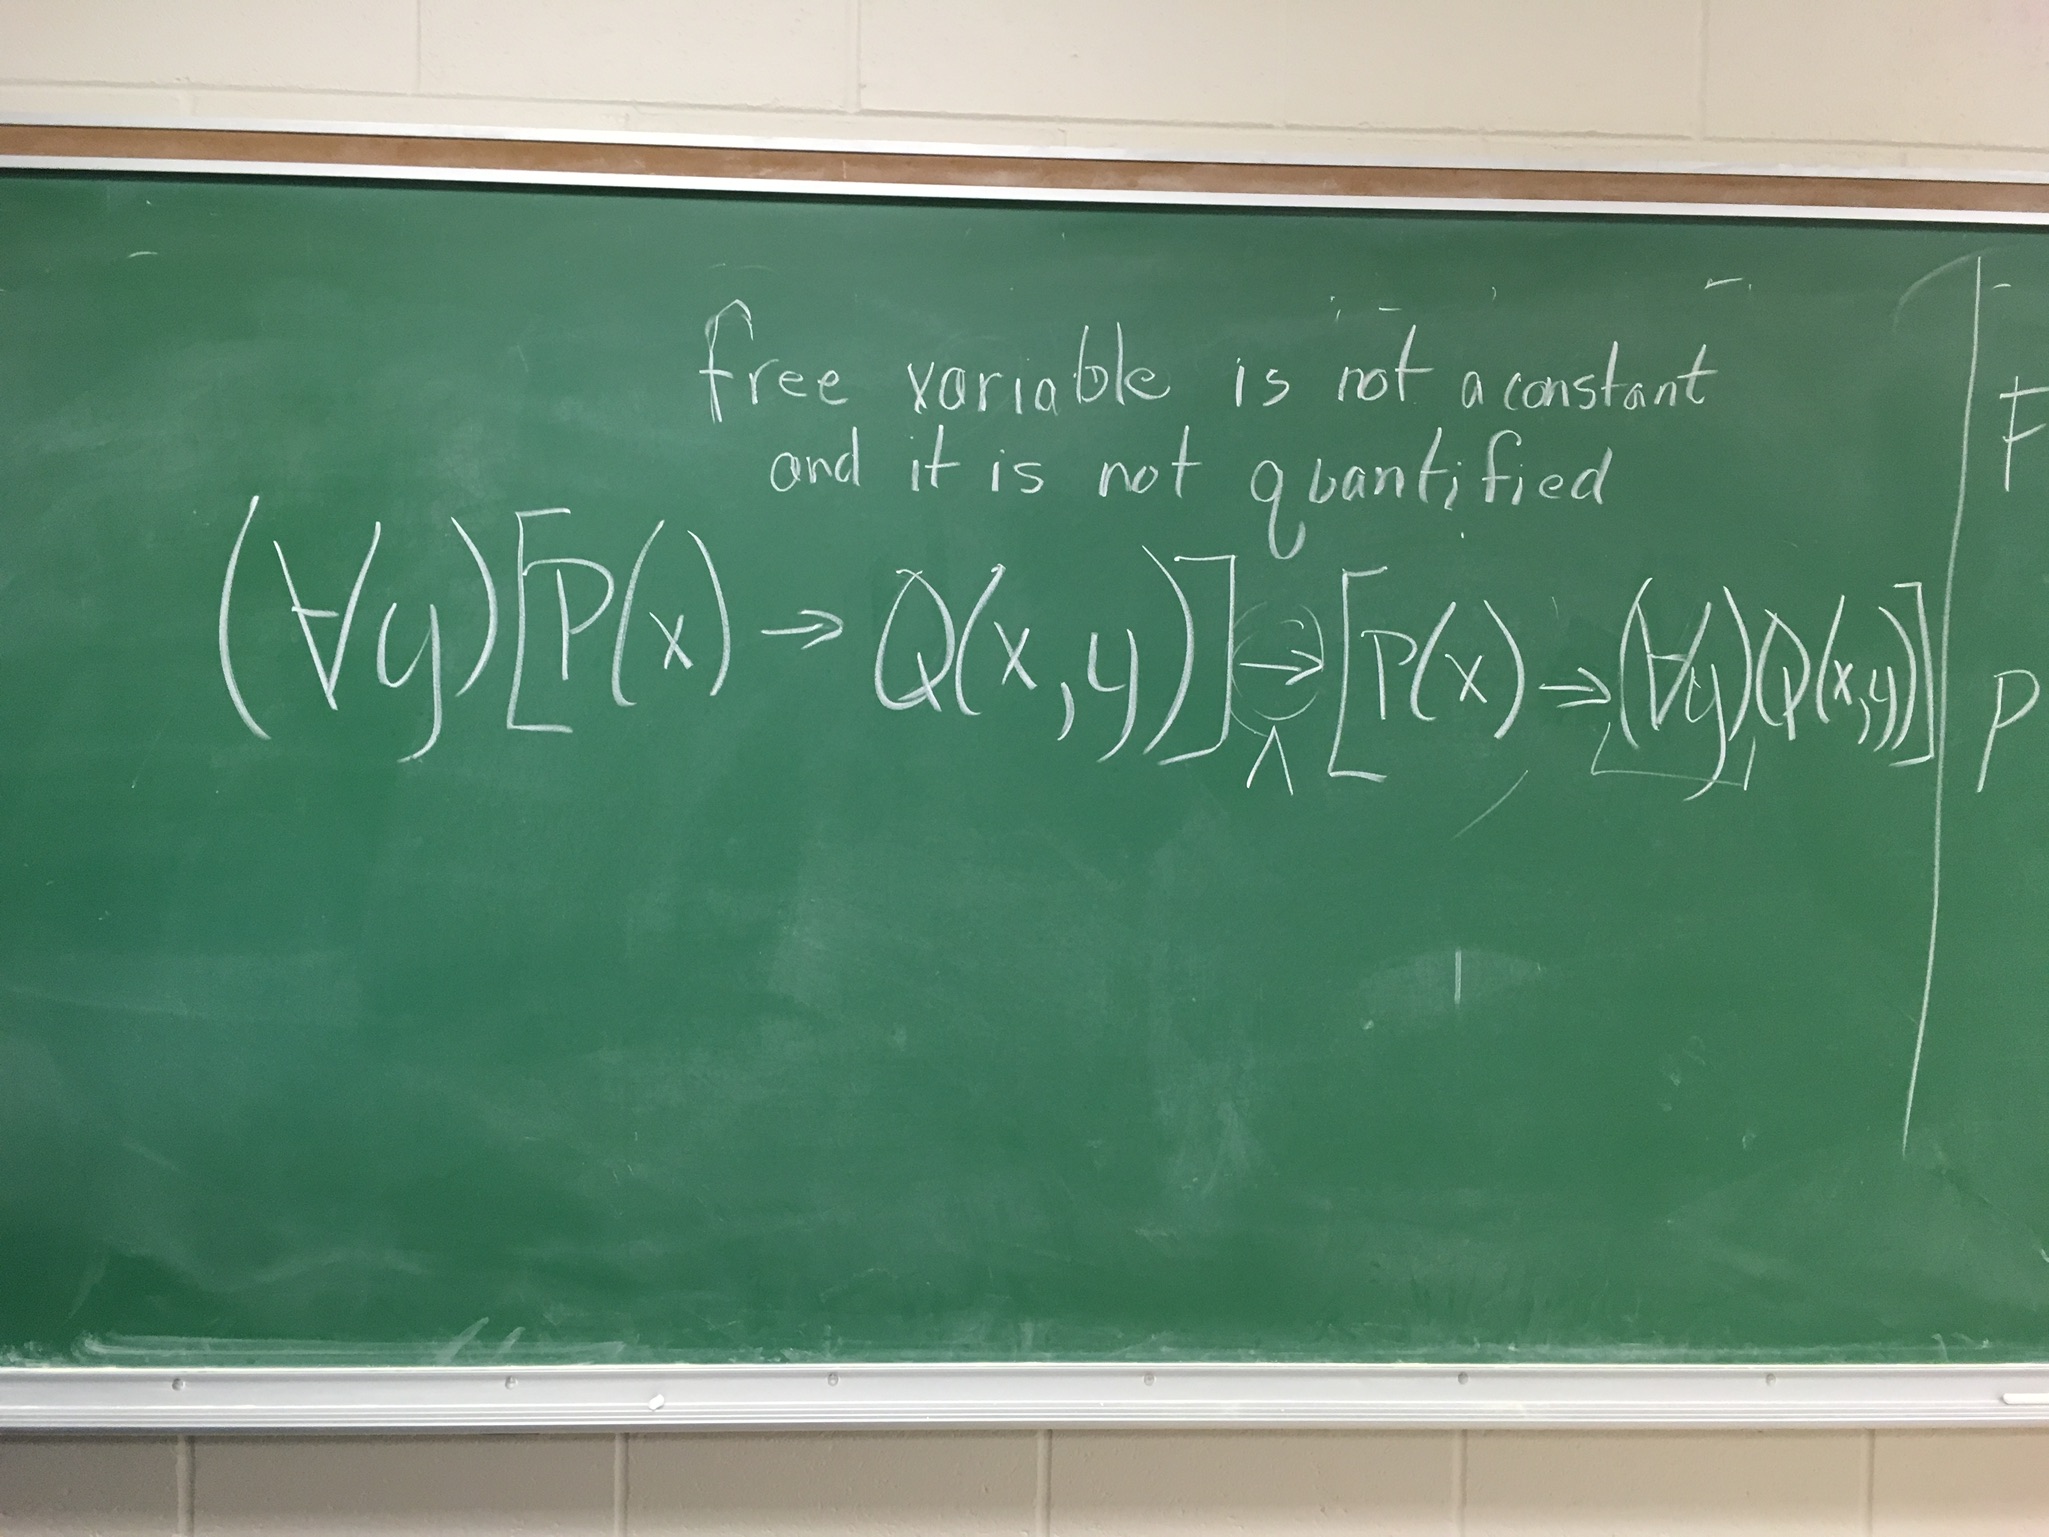 free variable is not a constant
and it is not quantified
(∀y)[P(x) → Q(x,y)] → [P(x) → (∀y)Q(x,y)]
∧
F
P